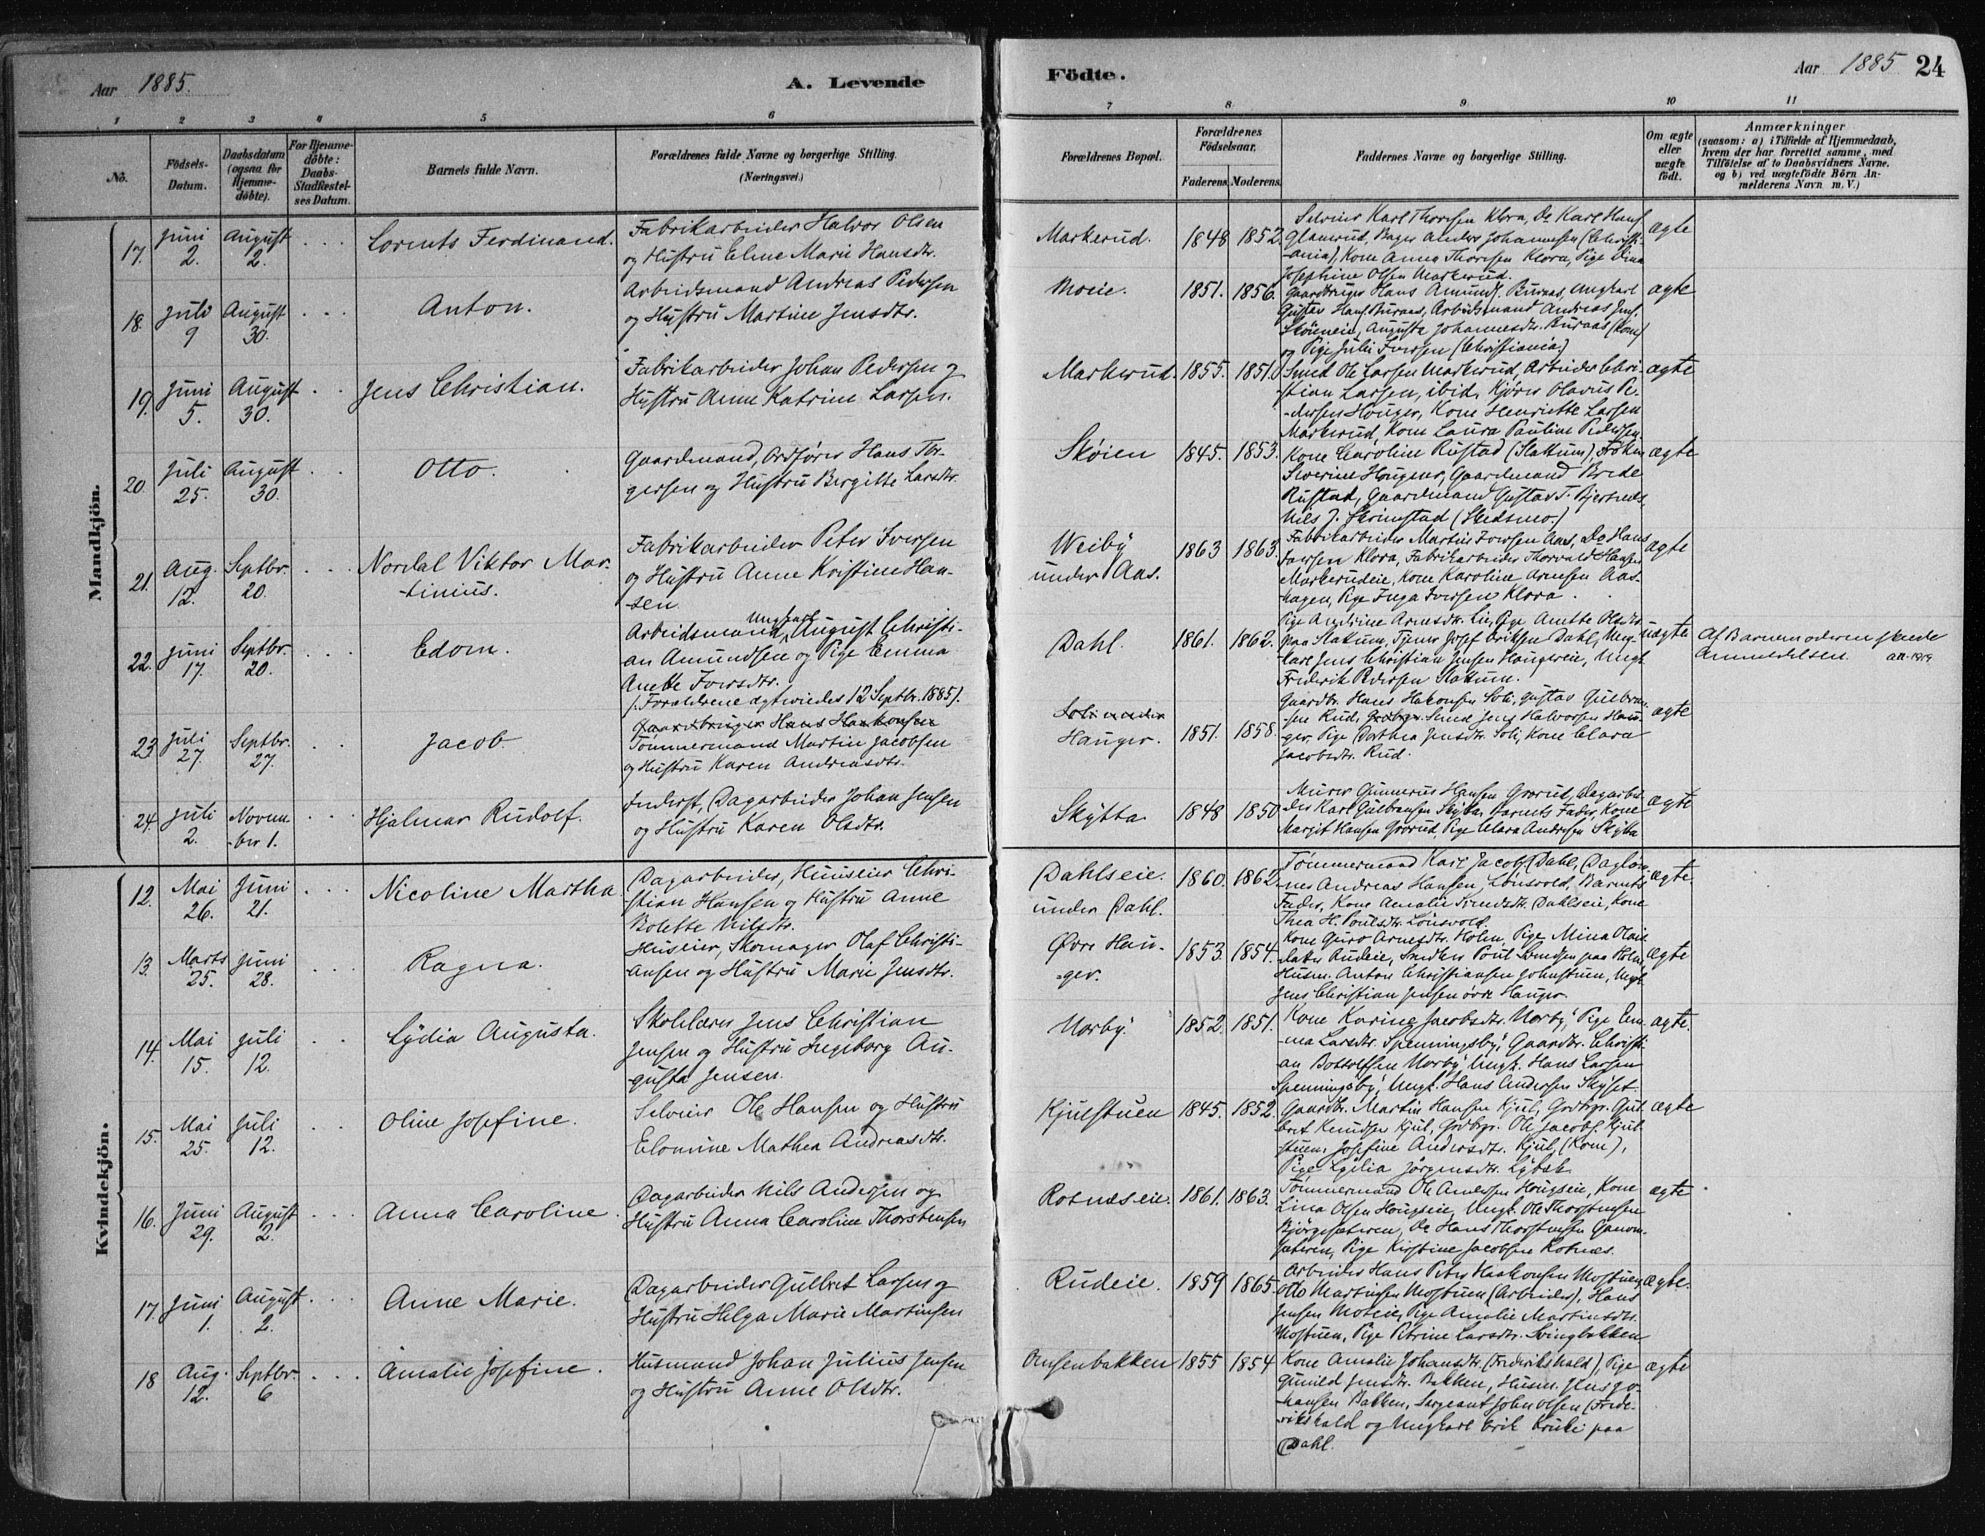 Aar 1885.
A. Levende
Födte.
Aar 1885
24
1 2 3 4 5 6 7 8 9 10 11
No.
Födsels-
Datum.
Daabsdatum
(ogsaa for
Hjemme-
döbte).
For Hjemme-
döbte:
Daabs-
Stadfæstel-
ses Datum.
Barnets fulde Navn.
Forældrenes fulde Navne og borgerlige Stilling.
(Næringsvei.)
Forældrenes Bopæl.
Forældrenes
Födselsaar.
Faderens. Moderens.
Faddernes Navne og borgerlige Stilling.
Om ægte
eller
uægte
födt.
Anmærkninger
(saasom: a) i Tilfælde af Hjemmedaab,
hvem der har forrettet samme, med
Tilföielse af to Daabsvidners Navne.
og b) ved uægtefödte Börn An-
melderens Navn m. V.)
Mandkjön.
17. Juni 2. August 2. Lorents Ferdinand.
Fabrikarbeider Halvor Olsen
og Hustru Eline Marie Hansdtr.
Markerud. 1848 1852.
Selveier Karl Thoresen Klora, Do Karl Hans
Glanerud, Bager Anders Johannesen (Christi-
ania), Kone Anna Thoresen Klora, Pige Lina
Josephine Olsen Markerud.
ægte
18. Juli 9 August 30. Anton.
Arbeidsmand Andreas Pedersen
og Hustru Martine Jensdtr.
Moeie. 1851. 1856.
Gaardbruger Hans Amunds. Buraas, Ungkarl
Gustav Hans. Buraas, Arbeidsmand Andreas Jens.
Sköieneie, Augusta Johannesdtr. Buraas (Kone)
og Pige Julie Iversen (Christiania)
ægte
19. Juni 5. August 30. Jens Christian.
Fabrikarbeider Johan Pedersen og
Hustru Anne Katrine Larsen.
Markerud. 1855. 1851.
Smed Ole Larsen Markerud, Arbeider Chri-
stian Larsen, ibid, Kjörer Olavus Pe-
dersen Houger, Kone Henriette Larsen
Markerud, Kone Laura Pauline Pedersen.
ægte
20 Juli 25. August 30. Otto.
Gaardmand, Ordförer Hans Tor-
gersen og Hustru Bergitte Larsdtr.
Skøien 1845. 1853.
Kone Caroline Rustad (Slattum), Fröken
Severine Hougens, Gaardmand Brede
Rustad, Gaardmand Gustav T. Bjertnes
Nils J. Skrimstad (Skedsmo.)
ægte
21. Aug. 12. Septbr. 20. Nordal Viktor Mar-
tinius.
Fabrikarbeider Peter Iversen
og Hustru Anne Kristine Han-
sen
Weiby
under Aas.
1863 1863.
Fabrikarbeider Martin Iversen Aas, Do Hans
Iversen Klora, Fabrikarbeider Thorvald Hansen
Markerudeie, Kone Karoline Arnesen Aas-
hagen, Pige Inga Iversen Klora.
ægte
22. Juni 17. Septbr. 20. Edom.
Ungkarl
Arbeidsmand, August Christi-
an Amundsen og Pige Emma
Anette Iversdtr.
(Forældrene ægteviedes 12 Septbr. 1885).
Dahl. 1861. 1862.
Pige Andrine Arnesdtr. Lie, Pige Anette Olsdtr.
paa Slatum, Tjener Josef Eriksen Dahl, Ung-
karl Jens Christian Jensen Haugereie, Ungk.
Frederik Pedersen Slatum.
uægte
Af Barnemoderen skede
Anmeldelsen.
23 Juli 27. Septbr. 27. Jacob
Gaardbruger Hans Haakonsen
Tömmermand Martin Jacobsen
og Hustru Karen Andreasdtr.
Soli under
Hauger.
1851. 1858.
Gaardbr. Hans Hakonsen Soli, Gustav Gulbran-
sen Rud, Smed Jens Halvorsen Hau-
ger, Pige Dorthea Jensdtr. Soli, Kone Clara
Jacobsdtr. Rud.
ægte
24. Juli 2. Novem-
ber 1. Hjalmar Rudolf.
Inderst, Dagarbeider Johan Jensen
og Hustru Karen Olsdtr.
Skytta 1848 1850
Murer Gunnerus Hansen Grorud, Dagarbei-
der Karl Gulbransen Skytta, Barnets Fader, Kone
Margit Hansen Grorud, Pige Clara Andresen Skytta
ægte
Kvindekjön.
12. Mai 26. Juni 21. Nicoline Martha
Dagarbeider, Huuseier Chri-
stian Hansen og Hustru Anne
Bolette Nilsdtr.
Dahlseie
under Dahl.
1860. 1862.
Tømmermand Karl Jacobs. Dahl, Dagløn-
ner Andreas Hansen, Lønsvold, Barnets
Fader, Kone Amalie Dahlseie, Kone
Thea H. Poulsdtr. Lønsvold.
ægte.
13. Marts 25. Juni 28. Ragna.
Huseier, Skomager Olaf Christi-
ansen og Hustru Marie Jensdtr.
Øvre Hau-
ger.
1853. 1854.
Kone Guro Arnesdtr. Holm, Pige Mina Olais
datter Rudeie, Snedker Poul Svendsen paa Holm,
Husm. Anton Christiansen Johnstuen, Ungk.
Jens Christian Jensen øvre Hauger.
ægte
14. Mai 15. Juli 12. Lydia Augusta.
Skolelærer Jens Christian
Jensen og Hustru Ingeborg Au-
gusta Jensen.
Morby. 1852. 1851.
Kone Karine Jacobsdtr. Morby, Pige Em-
ma Larsdtr. Spenningsby, Gaardbr. Christi-
an Bottolfsen Morby, Ungk. Hans Larsen
Spenningsby, Ungk. Hans Andersen Skyset.
ægte.
15. Mai 25. Juli 12. Oline Josefine.
Selveier Ole Hansen og Hustru
Elomine Mathea Andreasdtr.
Kjulstuen 1845. 1852.
Gaardbr. Martin Hansen Kjul, Grdbgr. Gul-
bret Knudsen Kjul, Grdbgr. Ole Jacobs. Kjul-
stuen, Josefine Andersdtr. Kjul, (Kone),
Pige Lydia Jörgensdtr. Lybæk
ægte
16. Juni 29. August 2. Anna Caroline.
Dagarbeider Nils Andersen og
Hustru Anna Caroline Thorstensen
Rotnæseie. 1861. 1863.
Tömmermand Ole Andersen Hougseie, Kone
Lina Olsen Hougseie, Ungk. Ole Thorstensen
Björgesæteren, Do Hans Thorstensen
sæteren, Pige Kirstine Jacobsen Rotnæs.
ægte
17. Juni 1. August 2. Anne Marie.
Dagarbeider Gulbret Larsen og
Hustru Helga Marie Martinsen
Rudeie. 1859 1865.
Arbeider Hans Peter Haakonsen Mostuen
Otto Martinsen Mostuen (Arbeider), Hans
Jensen Moseie, Pige Amalie Martinsdtr.
Mostuen, Pige Petrine Larsdtr. Svingbakken
ægte.
18 Aug. 12. Septbr. 6 Amalie Josefine.
Husmand Johan Julius Jensen
og Hustru Anne Olsdtr.
1855 1854
Kone Amalie Johansdtr. (Frederikshald), Pige
Gunild Jensdtr. Bakken, Husm. Jens Jo-
hansen Bakken, Sergeant John Olsen (Frede-
rikshald og Ungkarl Erik Kruke paa
Dahl.
ægte